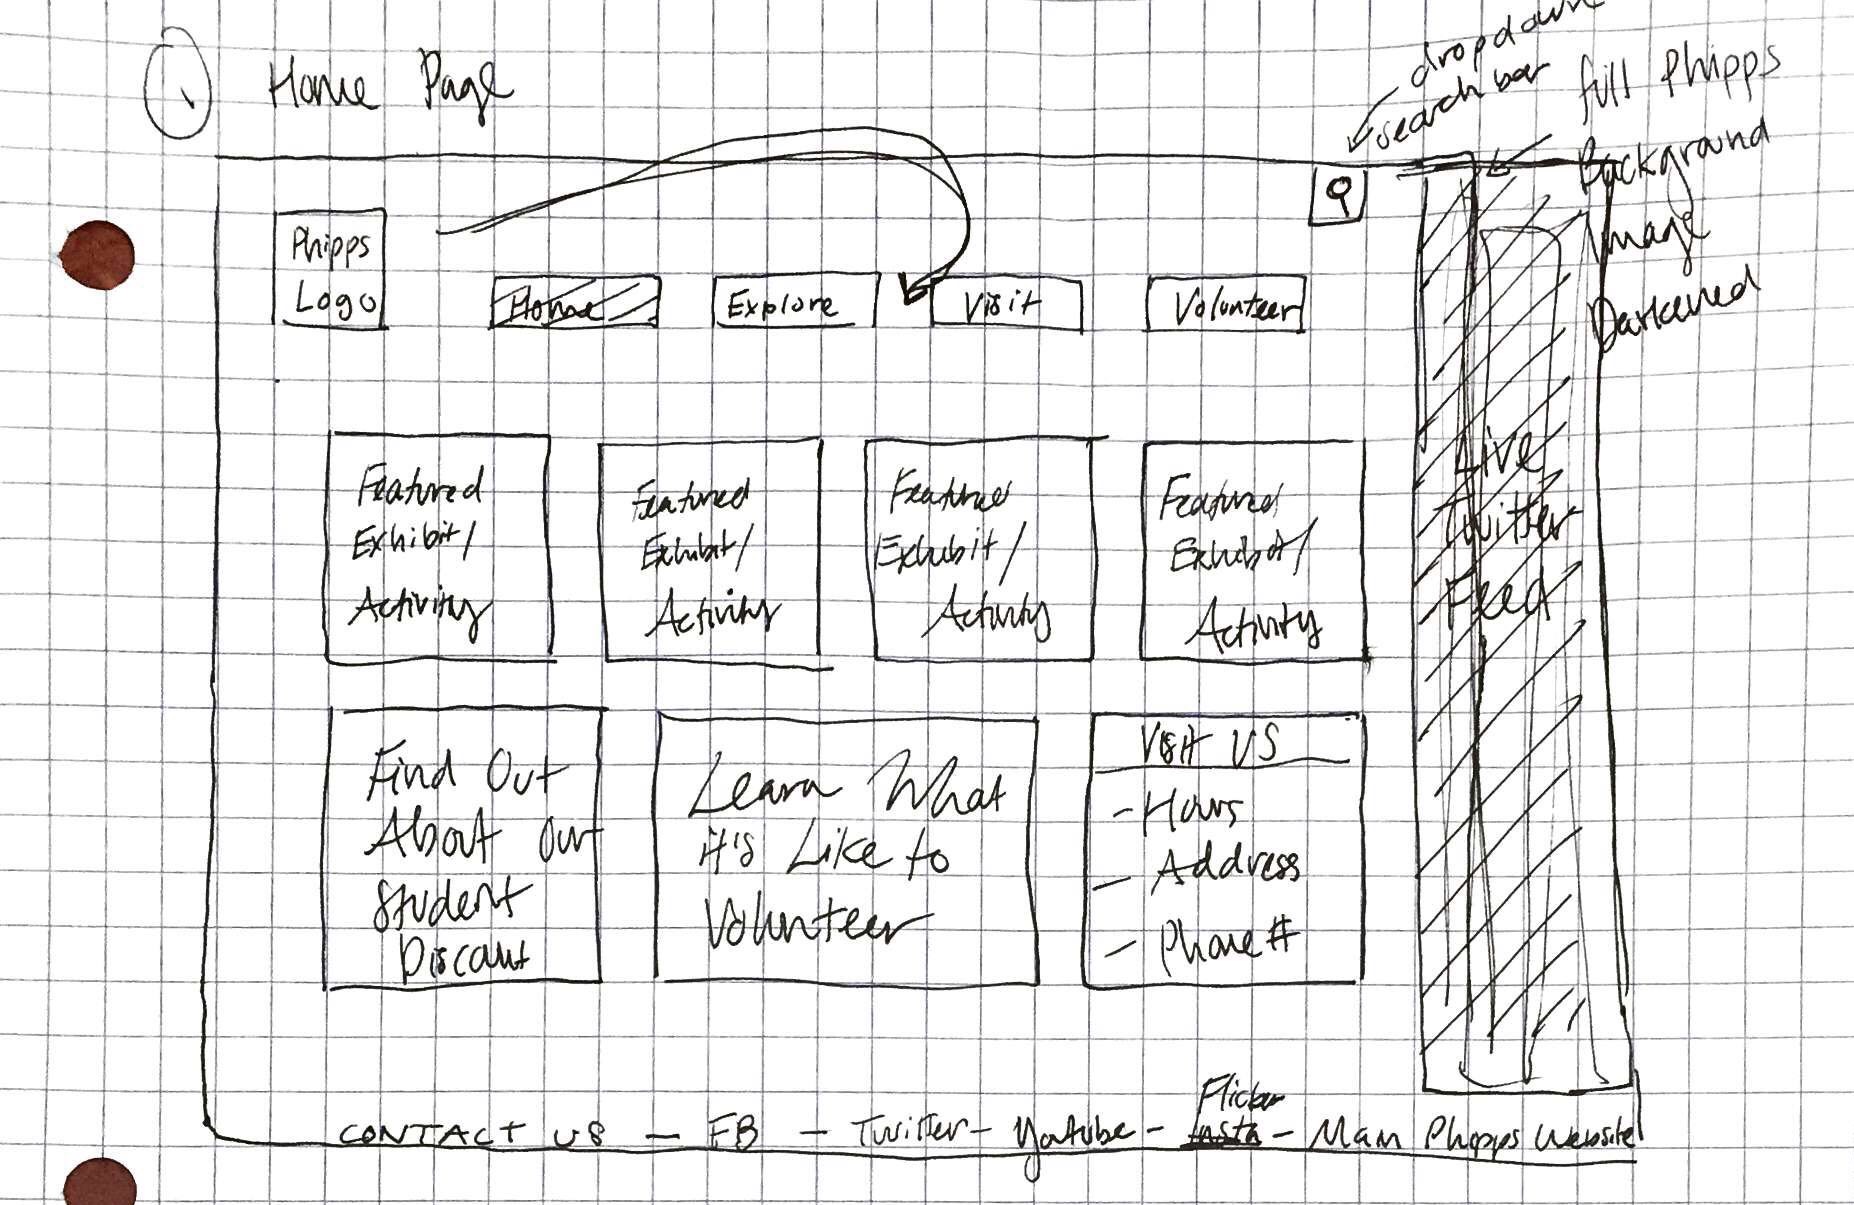 1 Home Page
dropdown
search bar
full Phipps
Background
Image
Darkened
Phipps
Logo
Home
Explore
Visit
Volunteer
Featured
Exhibit/
Activity
Featured
Exhibit/
Activity
Featured
Exhibit/
Activity
Featured
Exhibit/
Activity
Live
Twitter
Feed
Find Out
About Our
Student
Discount
Learn What
it's Like to
Volunteer
Visit US
- Hours
- Address
- Phone #
Flicker
CONTACT US - FB - Twitter - Youtube - Insta - Main Phipps Website